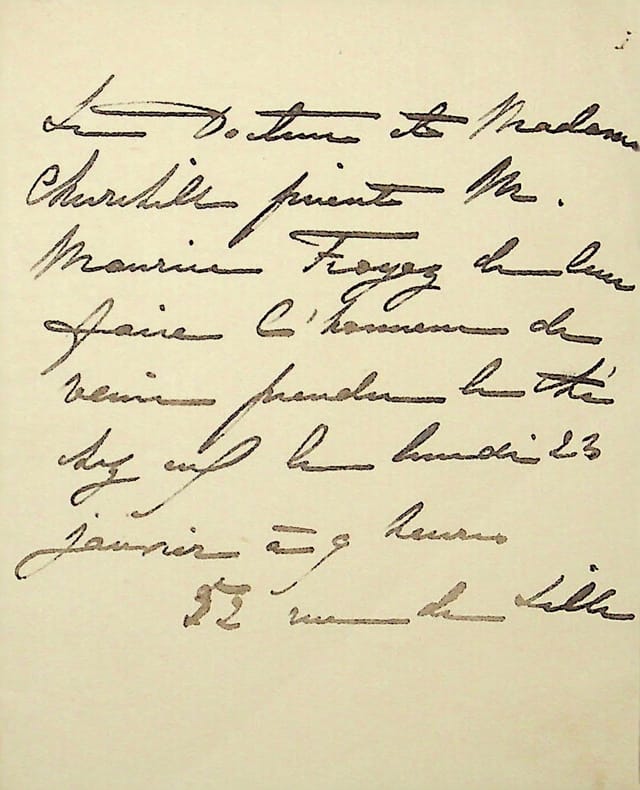 Le Docteur et Madame
Churchill prient M.
Maurice Froyez de leur
faire l'honneur de
venir prendre le thé
chez eux le lundi 23
janvier à 9 heures
52 rue de Lille